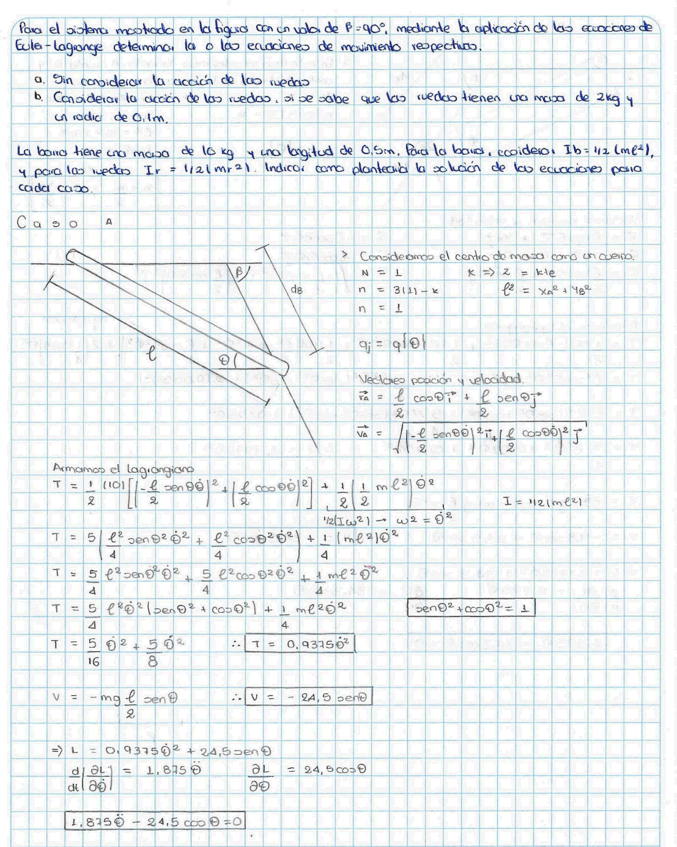 Para el sistema mostrado en la figura con un valor de β=90°, mediante la aplicación de las ecuaciones de
Euler-Lagrange determinar la o las ecuaciones de movimiento respectivas.
a. Sin considerar la acción de las ruedas
b. Considerar la acción de las ruedas, si se sabe que las ruedas tienen una masa de 2kg y
un radio de 0,1m.
La barra tiene una masa de 10 kg y una longitud de 0.5m. Para la barra, considerar Ib=1/2(mℓ²),
y para las ruedas Ir = 1/2(mr²). Indicar como plantearía la solución de las ecuaciones para
cada caso.
Caso A
β
dB
ℓ
θ
> Consideramos el centro de masa como un cuerpo.
N = 1 k => 2 = kte
n = 3(1) - k ℓ² = XA² + YB²
n = 1
qj = q{θ}
Vectores posición y velocidad.
r⃗A = ℓ/2 cosθ i⃗ + ℓ/2 senθ j⃗
v⃗A = √((-ℓ/2 senθθ̇)² i⃗ + (ℓ/2 cosθθ̇)² j⃗
Armamos el lagrangiano
T = 1/2 (10)[(-ℓ/2 senθθ̇)² + (ℓ/2 cosθθ̇)²] + 1/2(1/2 mℓ²)θ̇²
1/2(Iω²) → ω² = θ̇²
I = 1/2(mℓ²)
T = 5(ℓ²/4 senθ²θ̇² + ℓ²/4 cosθ²θ̇²) + 1/4 (mℓ²)θ̇²
T = 5/4 ℓ²senθ²θ̇² + 5/4 ℓ²cosθ²θ̇² + 1/4 mℓ²θ̇²
T = 5/4 ℓ²θ̇²(senθ² + cosθ²) + 1/4 mℓ²θ̇² senθ²+cosθ² = 1
T = 5/16 θ̇² + 5/8 θ̇² ∴ T = 0,9375θ̇²
V = -mg ℓ/2 senθ ∴ V = - 24,5 senθ
=> L = 0,9375θ̇² + 24,5senθ
d/dt(∂L/∂θ̇) = 1,875θ̈ ∂L/∂θ = 24,5cosθ
1,875θ̈ - 24,5 cosθ=0